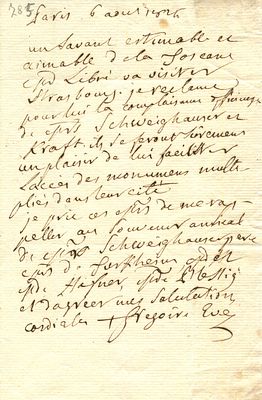 785
paris 6 aout 1824
un savant estimable et
aimable de la Toscane
Mr Libri va visiter
Strasbourg. je reclame
pour lui la complaisance
de Mrs Schweighauser et
Kraft. ils se feront surement
un plaisir de lui faciliter
l'accès des monumens multi
pliés dans leur cité
je prie ces Mrs de me rap
peller au souvenir amical
de Mr Schweighauser pere
de
Mr Hafner Mr de
et d'agréer mes salutations
cordiales + Gregoire Eve